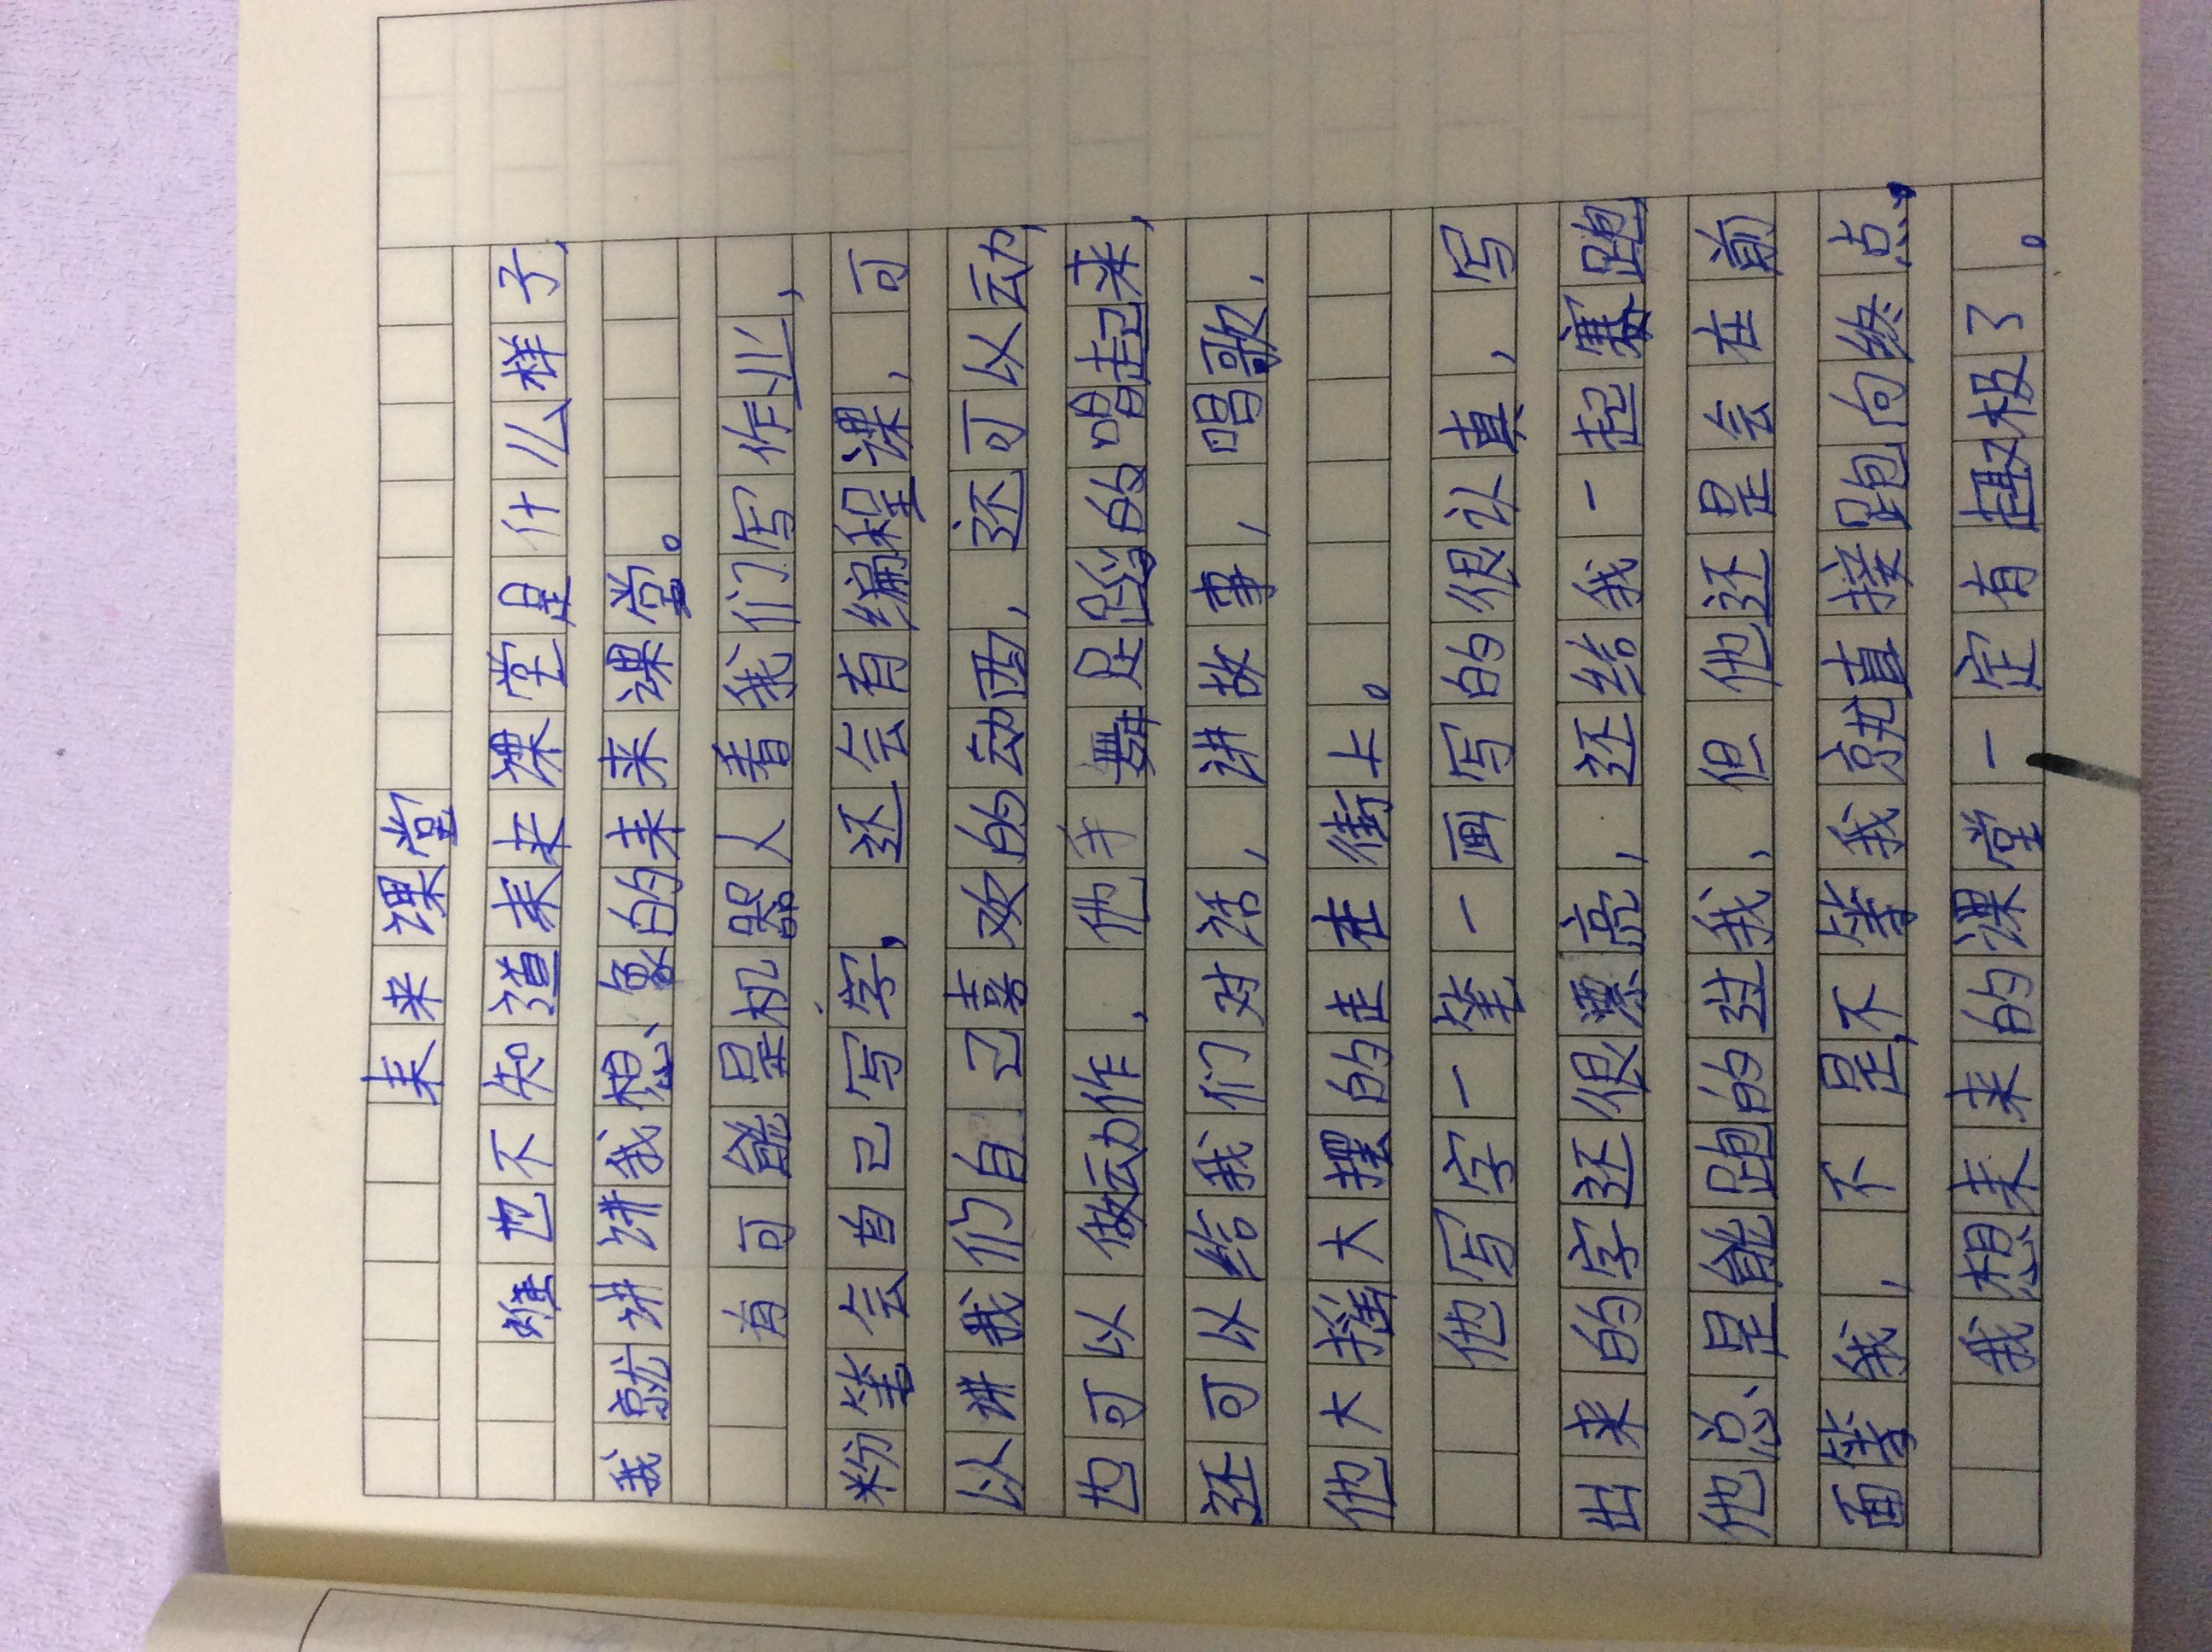 未来课堂
谁也不知道未来课堂是什么样子,
我就讲讲我想象的未来课堂。
有可能是机器人看我们写作业,
粉笔会自己写字,还会有编程课,可
以讲我们自己喜欢的动画,还可以动
也可以做动作,他手舞足蹈的唱起来,
还可以给我们对话,讲故事,唱歌.
他大摇大摆的走在街上。
他写字一笔一画写的很认真,写
出来的字还很漂亮,还给我一起赛跑
他总是能跑的过我,但他还是会在前
面等我,不是,不等我就直接跑向终点,
我想未来的课堂一定有趣极了。